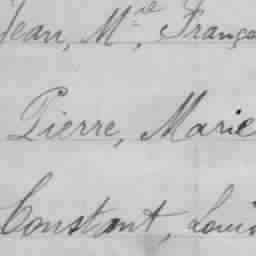 Jean, Mie, França
Pierre, Marie
Constant, Loui